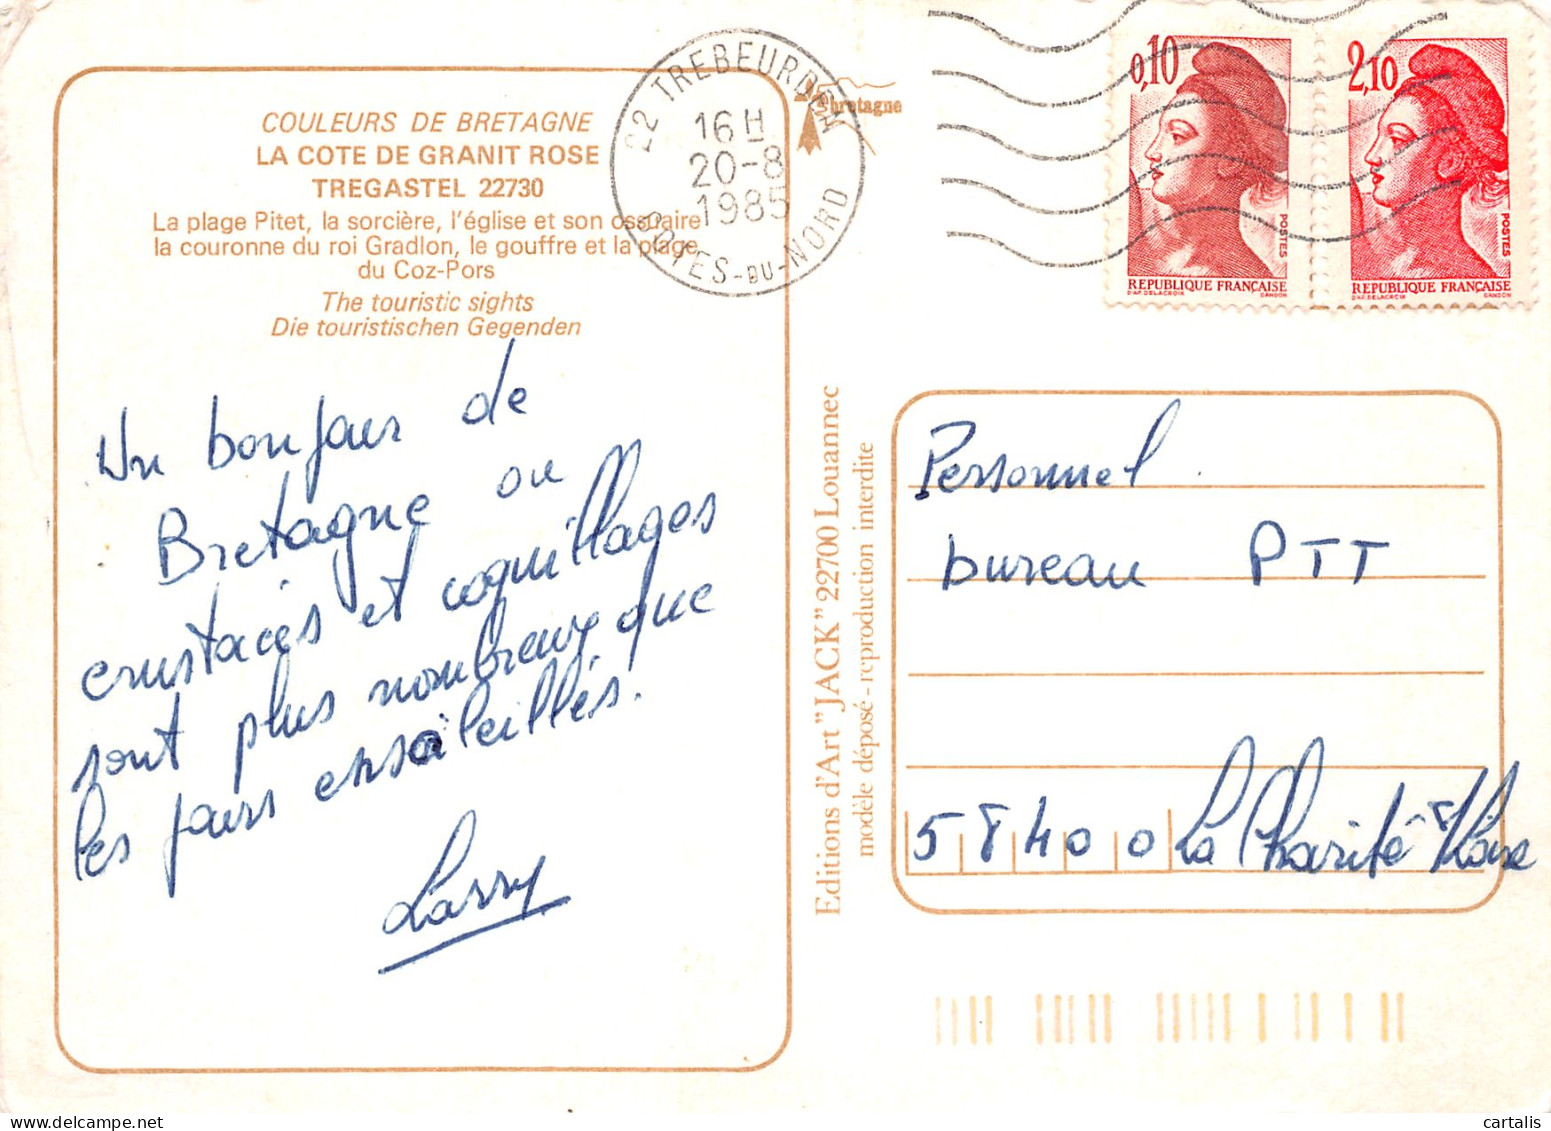 COULEURS DE BRETAGNE
LA COTE DE GRANIT ROSE
TREGASTEL 22730
La plage Pitet, la sorcière, l'église et son ossuaire
la couronne du roi Gradlon, le gouffre et la plage
du Coz-Pors
The touristic sights
Die touristischen Gegenden
Un bonjour de
Bretagne ou
crustacés et coquillages
sont plus nombreux que
les jours ensoleillés.
Larry
22 TREBEURDEN
16 H
20-8
1985
COTES-DU-NORD
bretagne
0,10
POSTES
REPUBLIQUE FRANÇAISE
D'AP. DELACROIX GANDON
2,10
POSTES
REPUBLIQUE FRANÇAISE
D'AP. DELACROIX GANDON
Editions d'Art "JACK" 22700 Louannec
modèle déposé - reproduction interdite
Personnel
bureau PTT
58400 La Charité s/Loire
cartalis